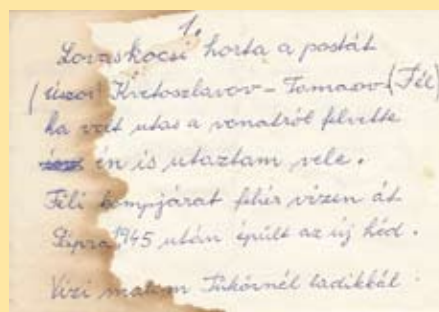 1.
Lovaskocsi horta a postát
(úszor) Kvetoszlavov - Tomasov (Fél)
ha volt utas a vonatról felvette
én is utaztam vele.
Féli kompjárat fehér vizen át
1945 után épült az új híd.
Vizi malom Tükörnél ladikkal